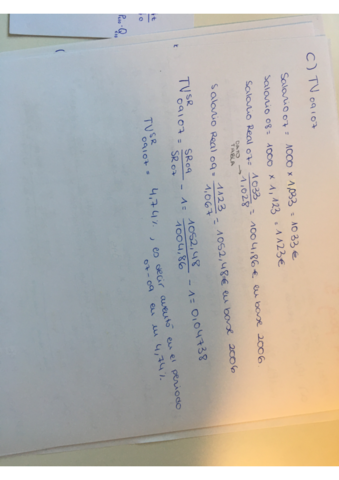 C) TV 09/07
Salario 07 = 1000 x 1,033 = 1033€
Salario 08 = 1000 x 1,123 = 1123€
Salario Real 07 = 1033 / 1,028 = 1004,86€ en base 2006
TABLA
Salario Real 09 = 1123 / 1,067 = 1052,48€ en base 2006
TV SR 09/07 = SR09 / SR07 - 1 = 1052,48 / 1004,86 - 1 = 0,04738
TV SR 09/07 = 4,74%, es decir aumentó en el periodo
07-09 en un 4,74%.